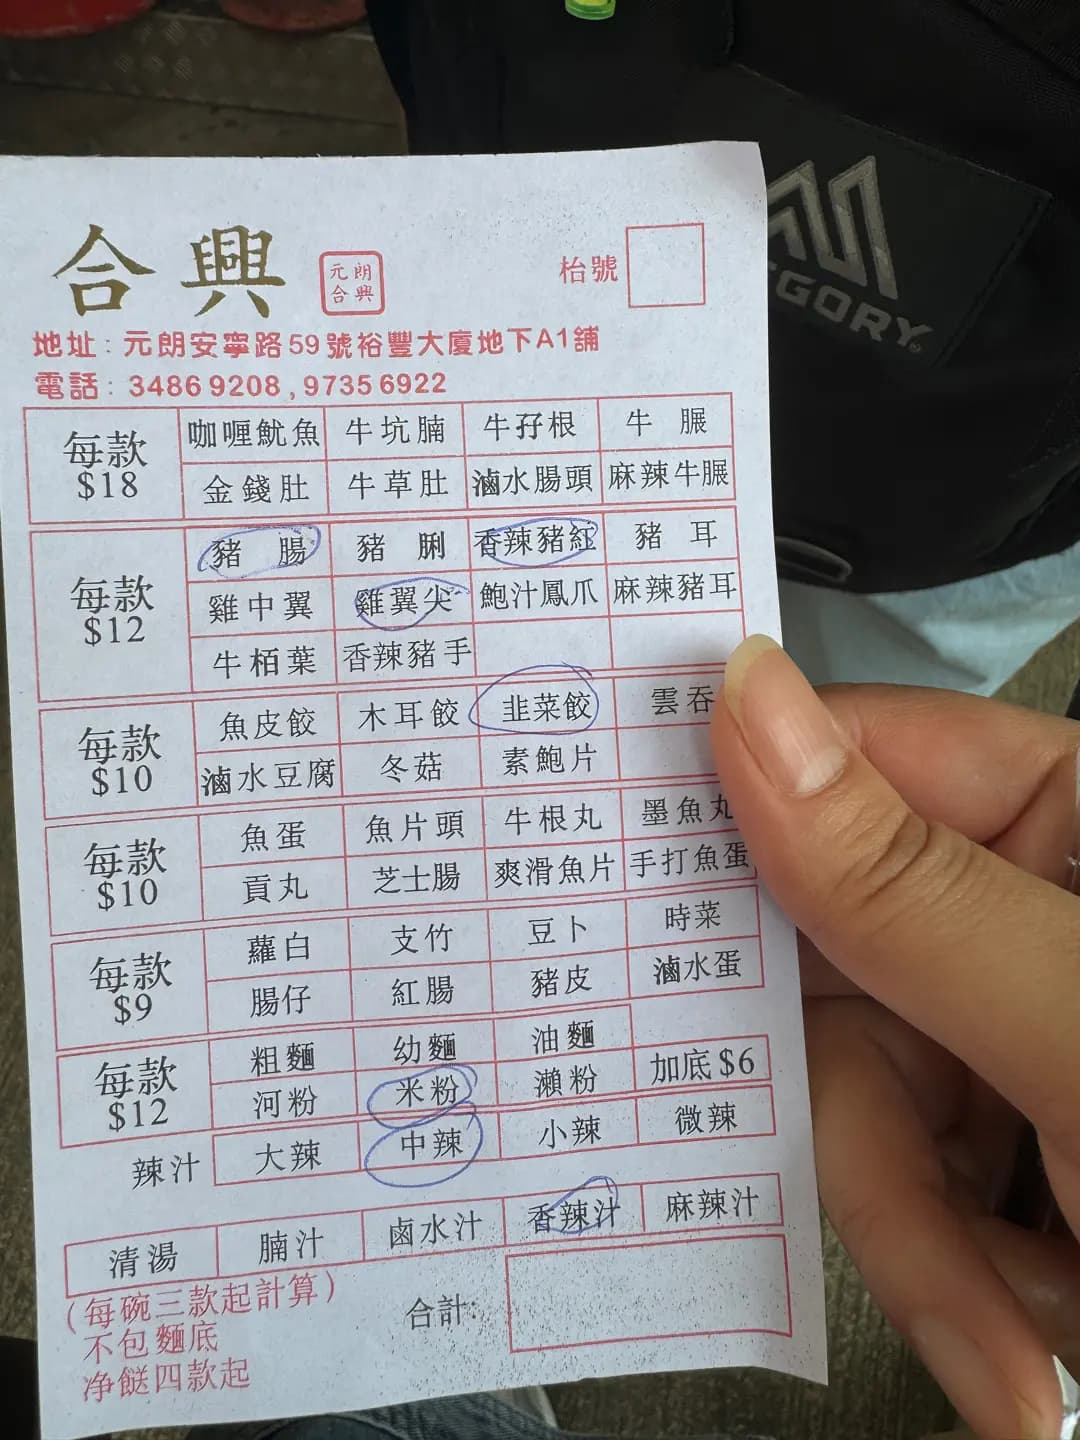 合興
元朗
合興
枱號
地址：元朗安寧路59號裕豐大廈地下A1舖
電話：3486 9208 , 9735 6922
每款 $18
咖喱魷魚 牛坑腩 牛孖根 牛 𦟌
金錢肚 牛草肚 滷水腸頭 麻辣牛𦟌
每款 $12
豬 腸 豬 脷 香辣豬紅 豬 耳
雞中翼 雞翼尖 鮑汁鳳爪 麻辣豬耳
牛栢葉 香辣豬手
每款 $10
魚皮餃 木耳餃 韭菜餃 雲吞
滷水豆腐 冬菇 素鮑片
每款 $10
魚蛋 魚片頭 牛根丸 墨魚丸
貢丸 芝士腸 爽滑魚片 手打魚蛋
每款 $9
蘿白 支竹 豆卜 時菜
腸仔 紅腸 豬皮 滷水蛋
每款 $12
粗麵 幼麵 油麵
河粉 米粉 瀨粉 加底 $6
辣汁 大辣 中辣 小辣 微辣
清湯 腩汁 鹵水汁 香辣汁 麻辣汁
(每碗三款起計算)
不包麵底
净餸四款起
合計:
GORY